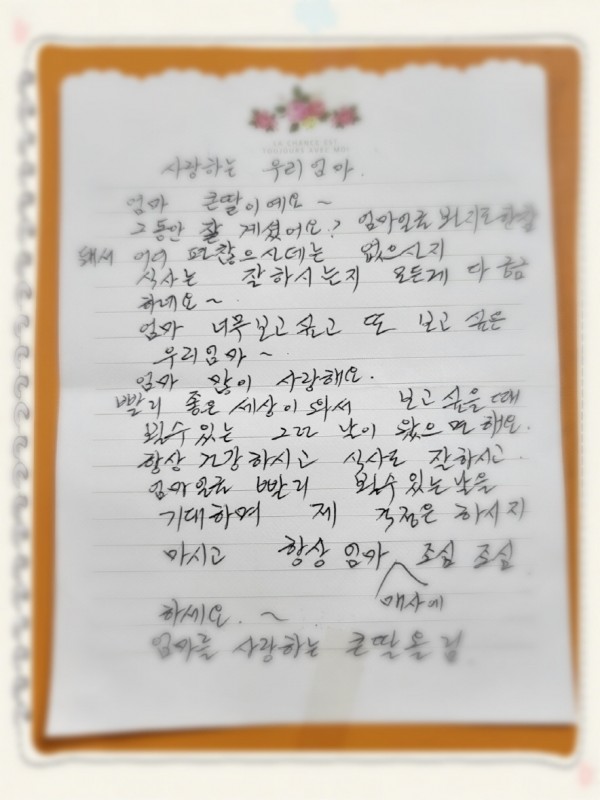 LA CHANCE EST
TOUJOURS AVEC MOI
사랑하는 우리엄마.
엄마 큰딸이예요 ~
그동안 잘 계셨어요? 엄마얼굴 보지도 못함
돼서 어디 편찮으신데는 없으신지
식사는 잘하시는지 모든게 다 궁금
하네요 ~
엄마 너무보고싶고 또 보고 싶은
우리엄마 ~
엄마 많이 사랑해요.
빨리 좋은 세상이 와서 보고 싶을 때
뵐수있는 그런 날이 왔으면 해요.
항상 건강하시고 식사도 잘하시고
엄마얼굴 빨리 뵐수있는날을
기대하며 제 걱정은 하시지
마시고 항상 엄마 조심 조심
매사에
하세요. ~
엄마를 사랑하는 큰딸올림